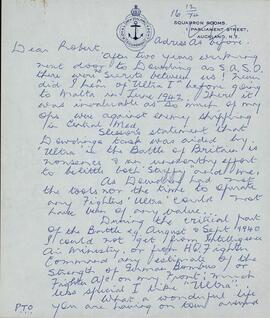 16 12/74
SQUADRON ROOMS,
1 PARLIAMENT STREET,
AUCKLAND, N.Z.
Adress as before.
Dear Robert,
After two years sharing
next door to Dowding as S.A.S.O.
there were Secrets between us! Never
did I hear of "Ultra I" before going
to Malta in June 1942. There it
was invaluable as so much of my
ops were against enemy shipping
in Central Med.
Slessors statement that
Dowdings task was aided by
"Ultra in the Battle of Britain" is
nonsense & an unworthy effort
to belittle both "Stuffy" and me.
As Dowding had not
the tools nor the time to operate
any Fighters "Ultra" could not
have been of any value.
During the critical part
of the Battle eg August & Sept 1940
I could not get from Intelligence
Air Ministry or from HQ Fighter
Command any estimate of the
Strength of German Bombers &
Fighter A/C on my front much
less special I like "Ultra".
What a wonderful life
you are having on tour around
PTO